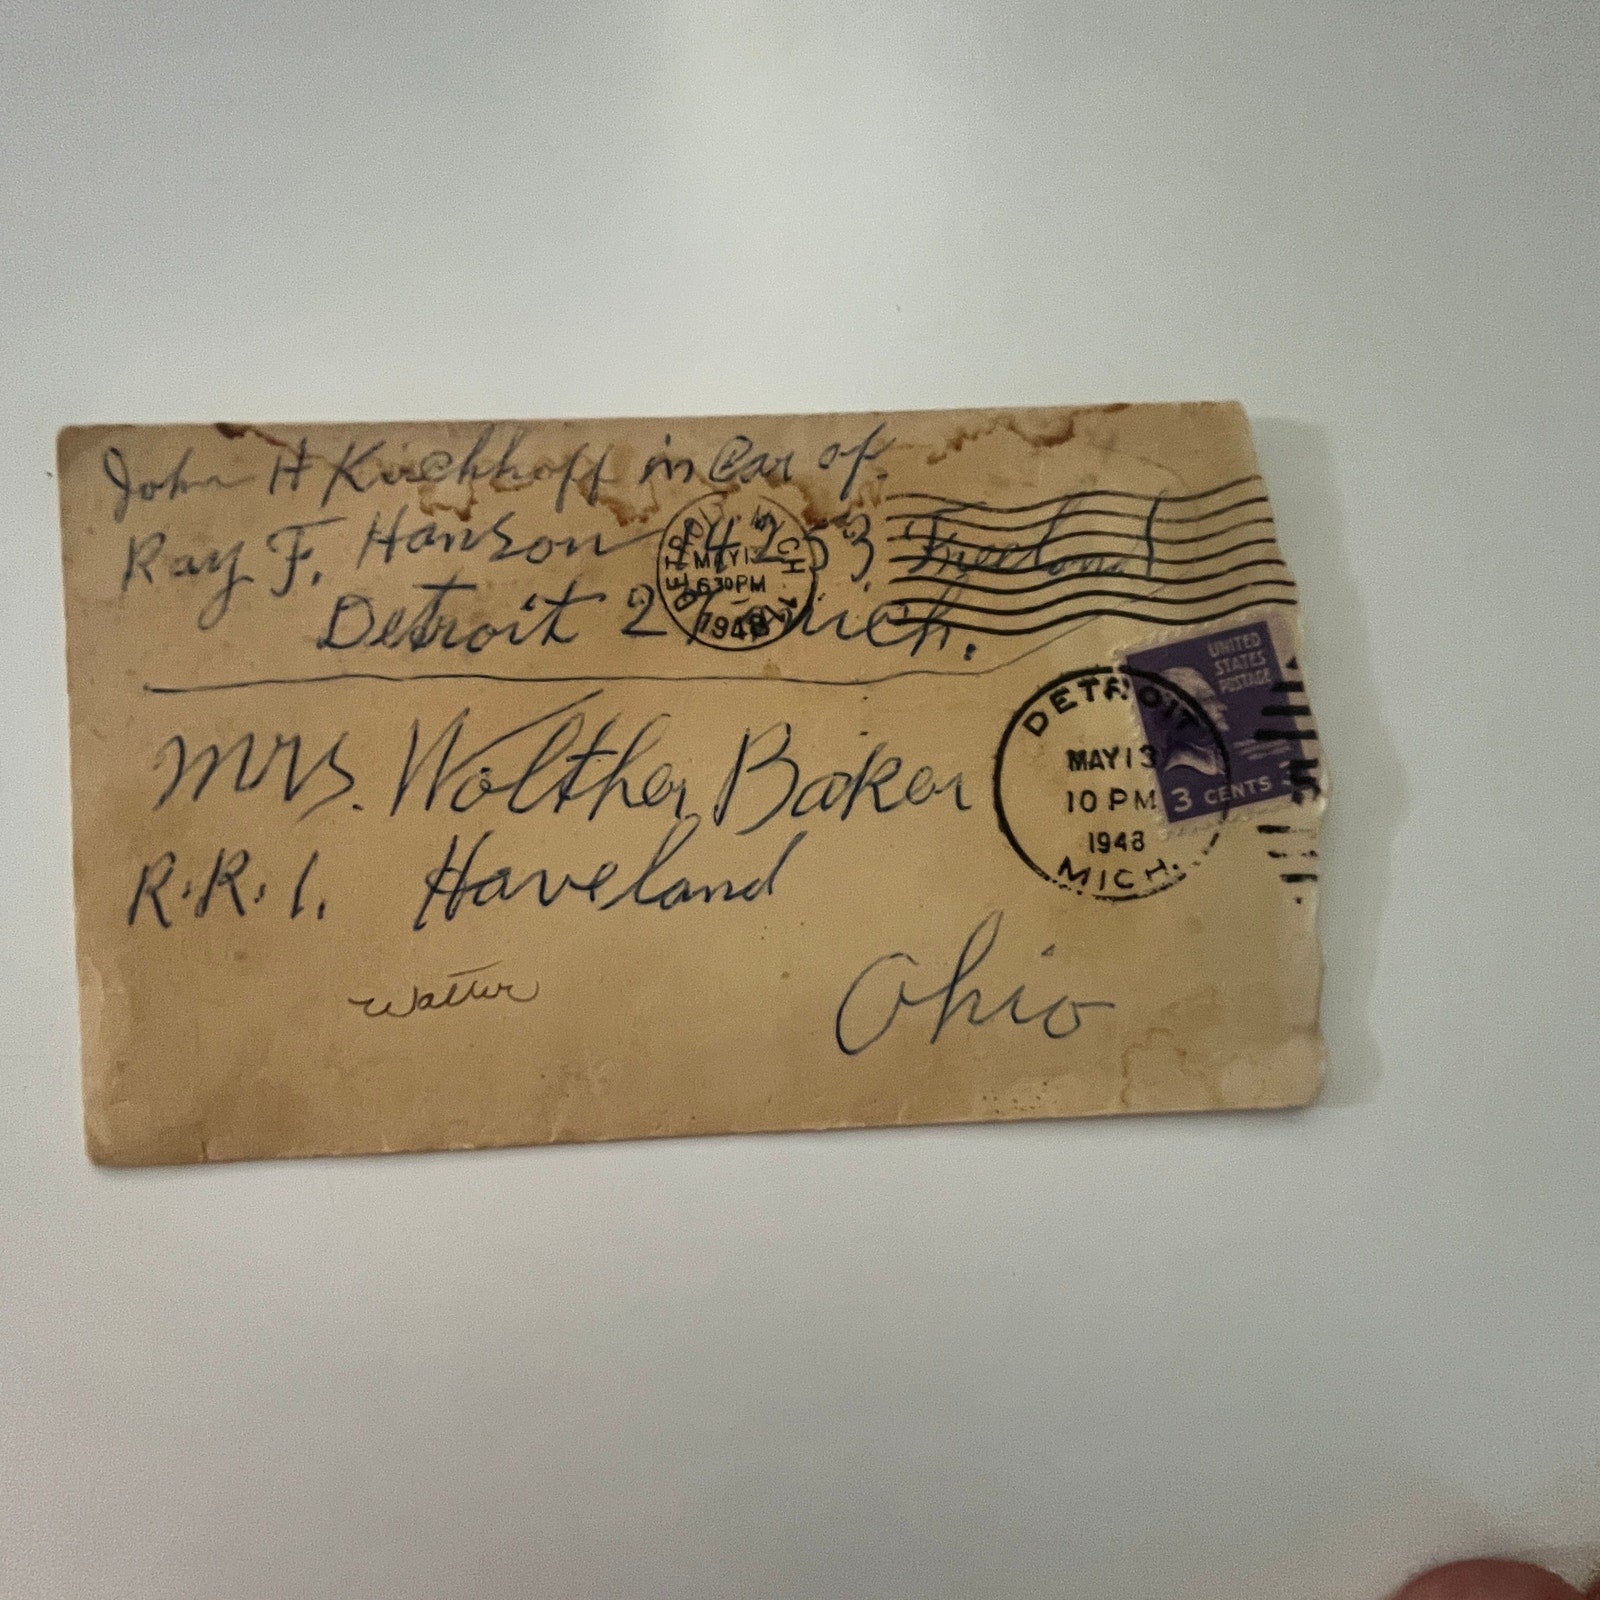 John H Kirchhoff in Car of
Ray F. Hanson 14253 Freeland
Detroit 27 Mich.
DETROIT MICH.
MAY 13
630 PM
1948
UNITED
STATES
POSTAGE
3 CENTS 3
DETROIT
MAY 13
10 PM
1948
MICH.
Mrs. Wolther Baker
R.R. 1. Haveland
Ohio
Walter